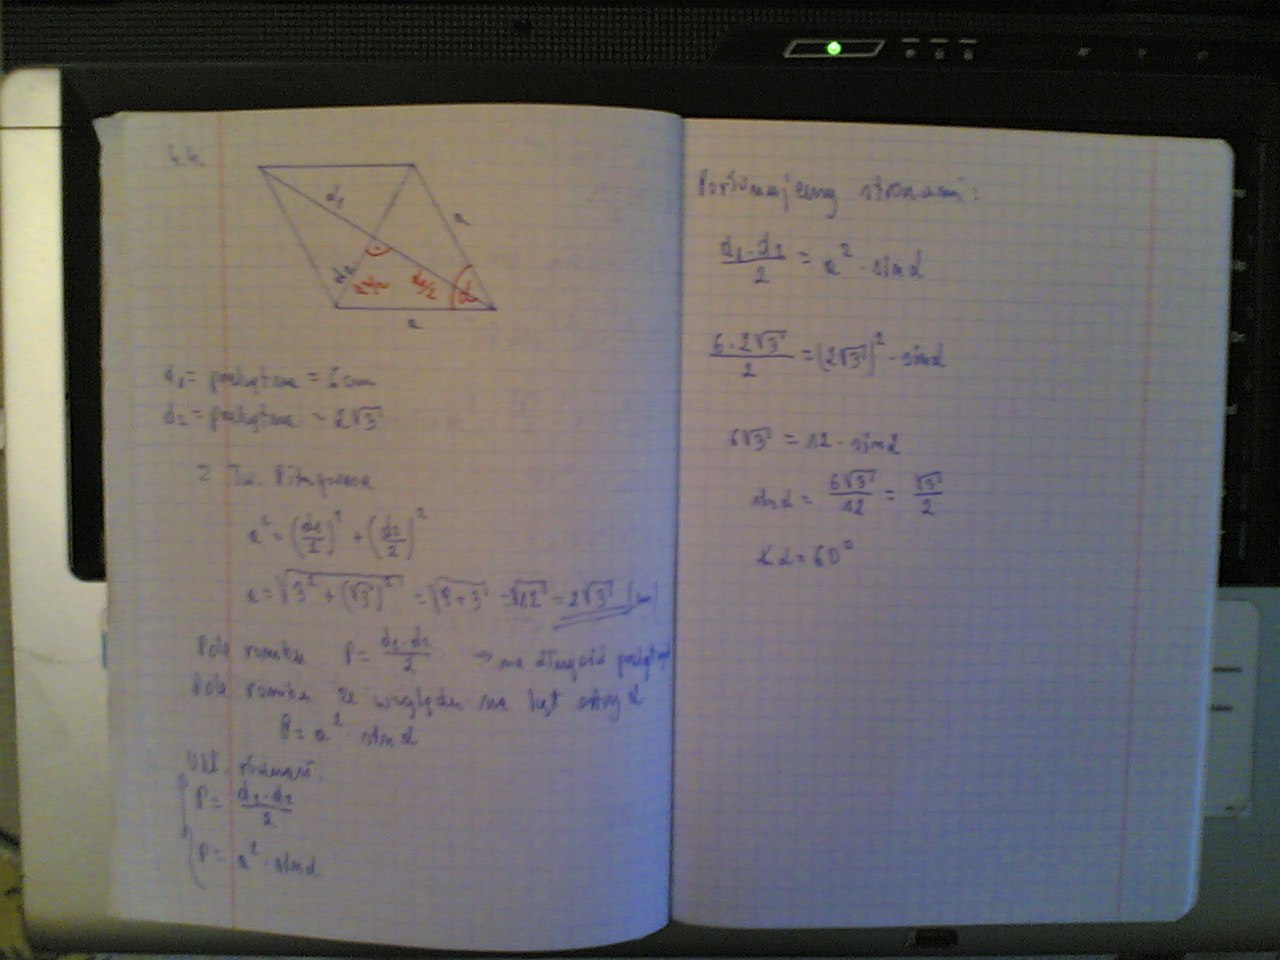 4.4.
d₁
a
d₂
d₂/2
d₁/2
α
a
d₁ = przekątna = 6 cm
d₂ = przekątna = 2√3
Z Tw. Pitagorasa
a² = (d₁/2)² + (d₂/2)²
a = √(3² + (√3)²) = √(9+3) = √12 = 2√3 (cm)
Pole rombu P = d₁·d₂/2 → na długość przekątnej
Pole rombu ze względu na kąt ostry α
P = a² · sin α
Ukł. równań.
P = d₁·d₂/2
P = a² · sin α
Porównujemy stronami:
d₁·d₂/2 = a² · sin α
6·2√3/2 = (2√3)² · sin α
6√3 = 12 · sin α
sin α = 6√3/12 = √3/2
∡α = 60°